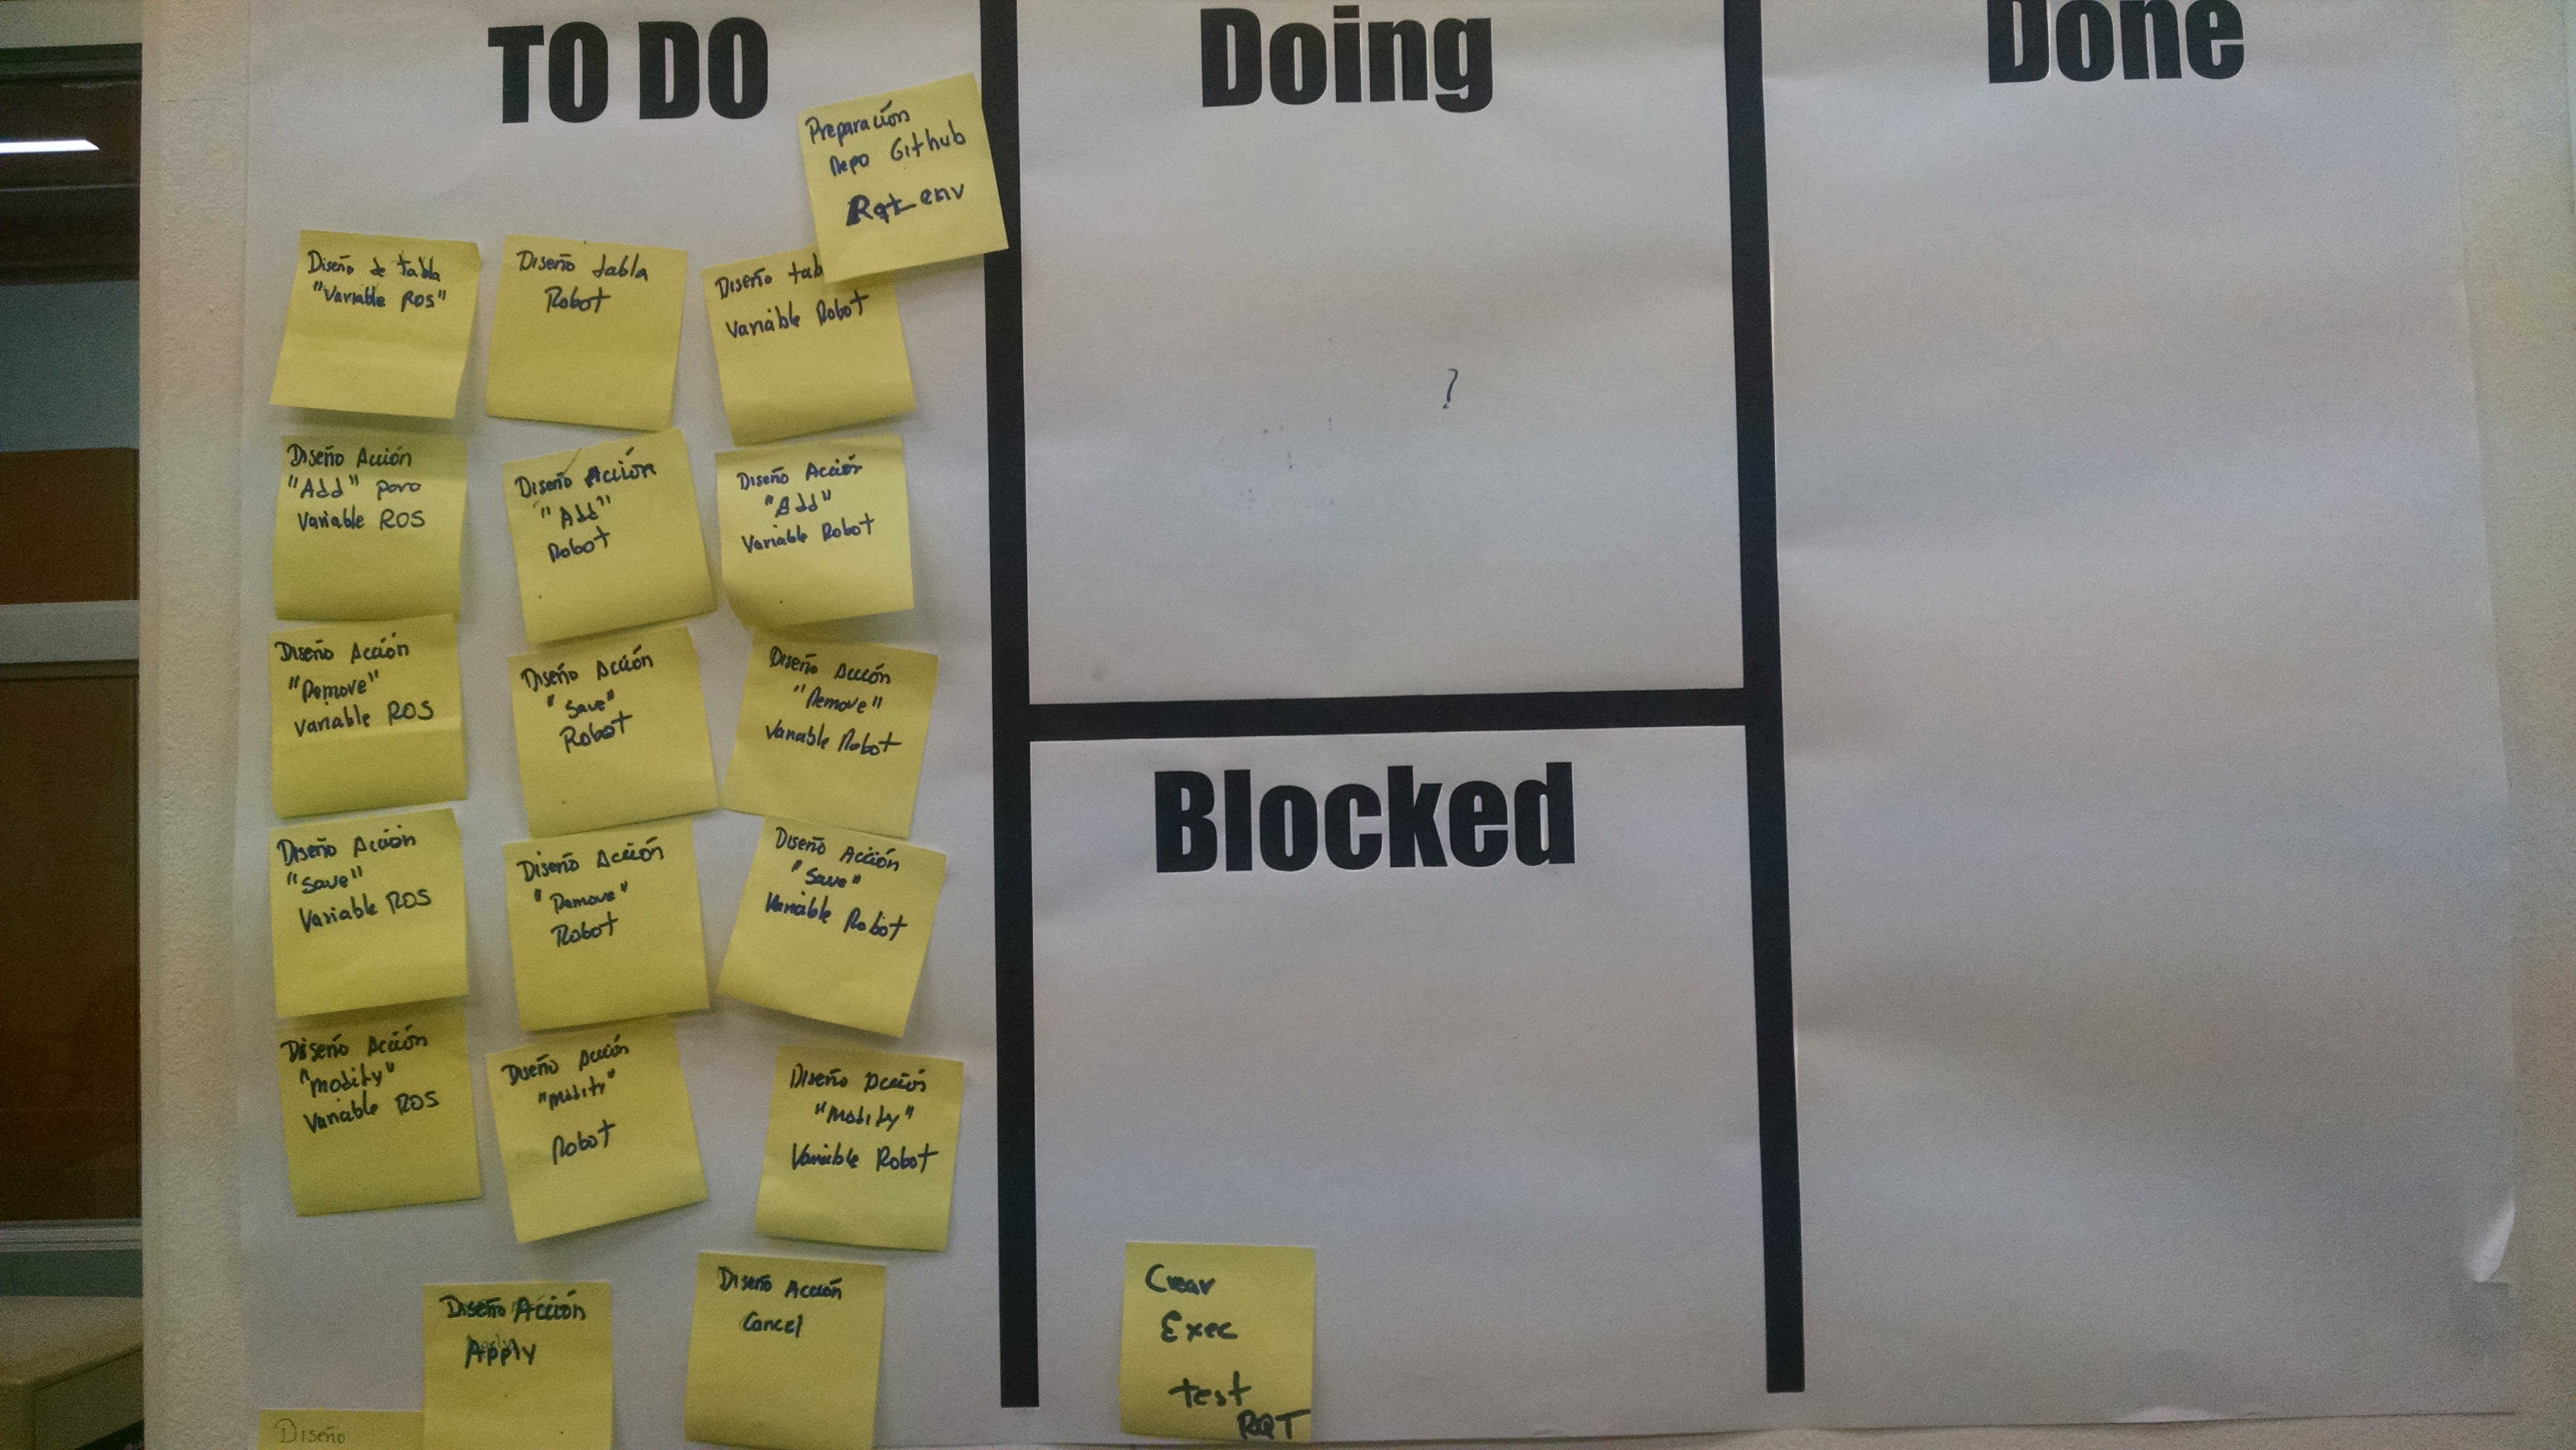 TO DO
Doing
Done
Preparación
Repo Github
Rqt_env
Diseño de tabla
"Variable ROS"
Diseño tabla
Robot
Diseño tab
Variable Robot
Diseño Acción
"Add" para
Variable ROS
Diseño Acción
"Add"
Robot
Diseño Acción
"Add"
Variable Robot
Diseño Acción
"Remove"
Variable ROS
Diseño Acción
"Save"
Robot
Diseño Acción
"Remove"
Variable Robot
Diseño Acción
"Save"
Variable ROS
Diseño Acción
"Remove"
Robot
Diseño Acción
"Save"
Variable Robot
Diseño Acción
"Modify"
Variable ROS
Diseño Acción
"Modify"
Robot
Diseño Acción
"Modify"
Variable Robot
Diseño Acción
Apply
Diseño Acción
Cancel
Diseño
?
Blocked
Crear
Exec
test
RQT